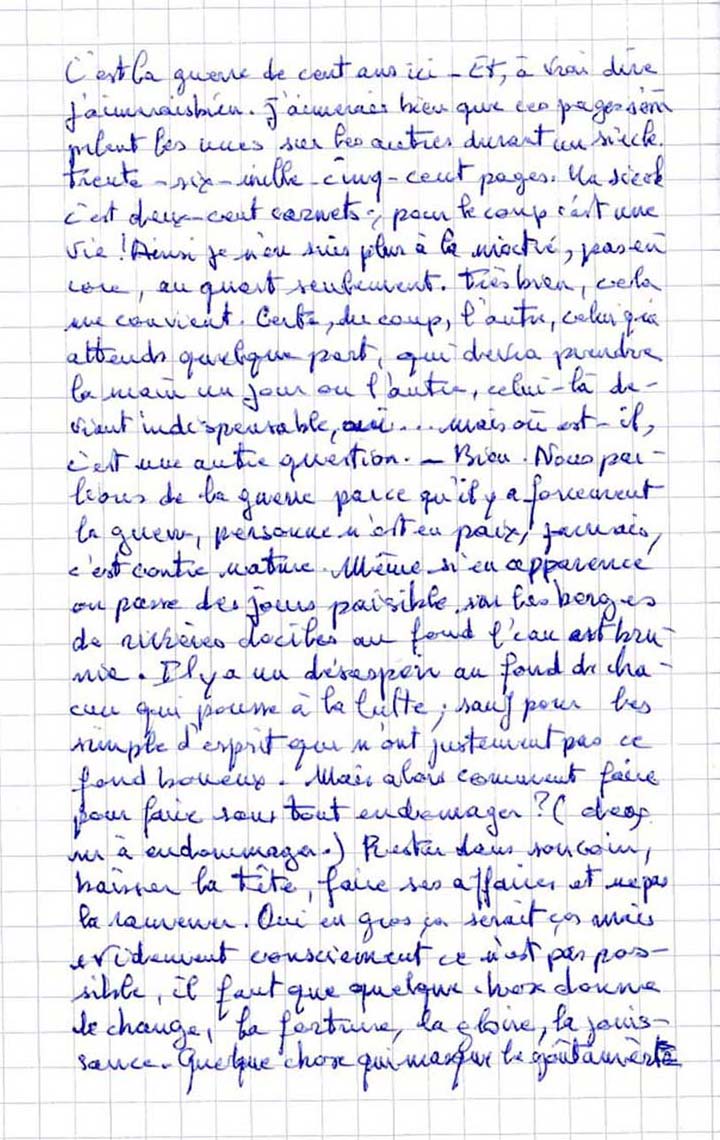 C'est la guerre de cent ans ici – Et, à vrai dire
j'aimerais bien. J'aimerais bien que ces pages s'em
pilent les unes sur les autres durant un siècle.
Trente-six-mille-cinq-cent pages. Un siècle
c'est deux-cent carnets ; pour le coup c'est une
vie ! Ainsi je n'en suis plus à la moitié, pas en
core, au quart seulement. Très bien, cela
me convient. Certe, du coup, l'autre, celui qui
attends quelque part, qui devra prendre
la main un jour ou l'autre, celui-là de-
vient indispensable, oui... mais où est-il,
c'est une autre question. – Bien. Nous par-
lions de la guerre parce qu'il y a forcement
la guerre, personne n'est en paix, jamais,
c'est contre nature. Même si en apparence
on passe des jours paisible sur les berges
de rivières dociles au fond l'eau est bru-
nie. Il y a un désespoir au fond de cha-
cun qui pousse à la lutte ; sauf pour les
simple d'esprit qui n'ont justement pas ce
fond boueux. Mais alors comment faire
pour faire sans tout endomager ? (
à endommager.) Rester dans son coin,
baisser la tête, faire ses affaires et ne pas
la ramener. Oui en gros ça serait ça mais
evidement consciement ce n'est pas pos-
sible, il faut que quelque chose donne
le change, la fortune, la gloire, la jouis-
sance. Quelque chose qui masque le goût amère